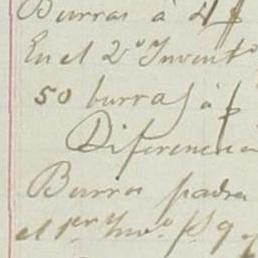 Burras á 4 $
En el 2º Invent
50 burras á $
Diferencia
Burros padre
el 1er Invº